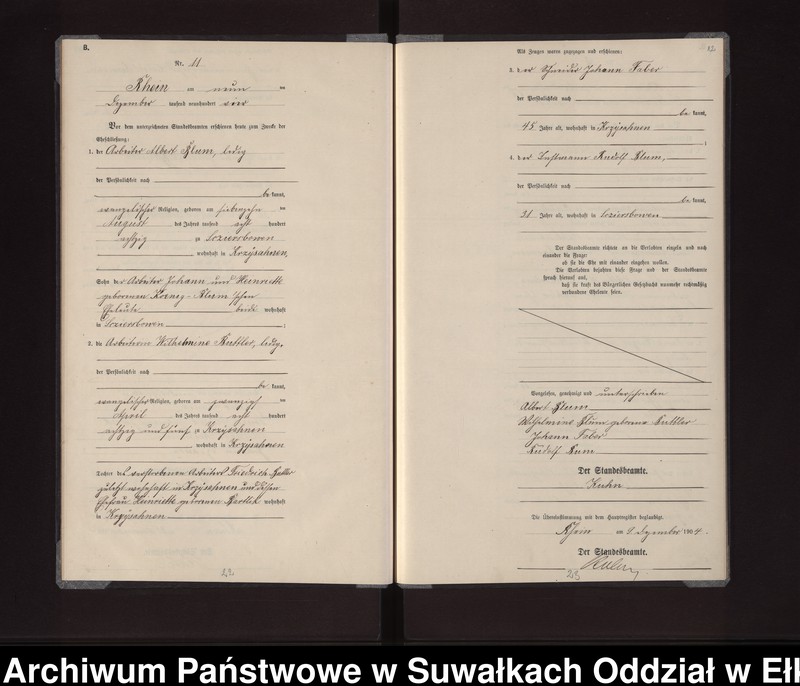 B.
Nr. 11
Rhein am neun ten
Dezember tausend neunhundert vier
Vor dem unterzeichneten Standesbeamten erschienen heute zum Zwecke der
Eheschließung:
1. der Arbeiter Albert Blum, ledig
der Persönlichkeit nach
be kannt,
evangelischer Religion, geboren am siebenzehn ten
August des Jahres tausend acht hundert
achtzig zu
, wohnhaft in Krzysahnen,
Sohn des Arbeiter Johann und Henriette
geborenen - Blum'schen
Eheleute beide wohnhaft
in ;
2. die Arbeiterin Wilhelmine Buttler, ledig,
der Persönlichkeit nach
be kannt,
evangelischer Religion, geboren am zwanzigsten
April des Jahres tausend acht hundert
achtzig und fünf zu Krzysahnen
, wohnhaft in Krzysahnen
Tochter des verstorbenen Arbeiters Friedrich Buttler
zuletzt wohnhaft in Krzysahnen und dessen
Ehefrau Henriette geborenen wohnhaft
in Krzysahnen
23.
Als Zeugen waren zugezogen und erschienen:
12.
3. der Schneider Johann Faber
der Persönlichkeit nach
be kannt,
48 Jahre alt, wohnhaft in Krzysahnen
;
4. der Rudolf Blum,
der Persönlichkeit nach
be kannt,
31 Jahre alt, wohnhaft in
Der Standesbeamte richtete an die Verlobten einzeln und nach
einander die Frage:
ob sie die Ehe mit einander eingehen wollen.
Die Verlobten bejahten diese Frage und der Standesbeamte
sprach hierauf aus,
daß sie kraft des Bürgerlichen Gesetzbuchs nunmehr rechtmäßig
verbundene Eheleute seien.
Vorgelesen, genehmigt und unterschrieben
Albert Blum
Wilhelmine Blum geborene Buttler
Johann Faber
Rudolf Blum
Der Standesbeamte.
Kuhn
Die Übereinstimmung mit dem Hauptregister beglaubigt.
Rhein am 9. Dezember 1904.
Der Standesbeamte.
Kuhn
23
Archiwum Państwowe w Suwałkach Oddział w Ełk